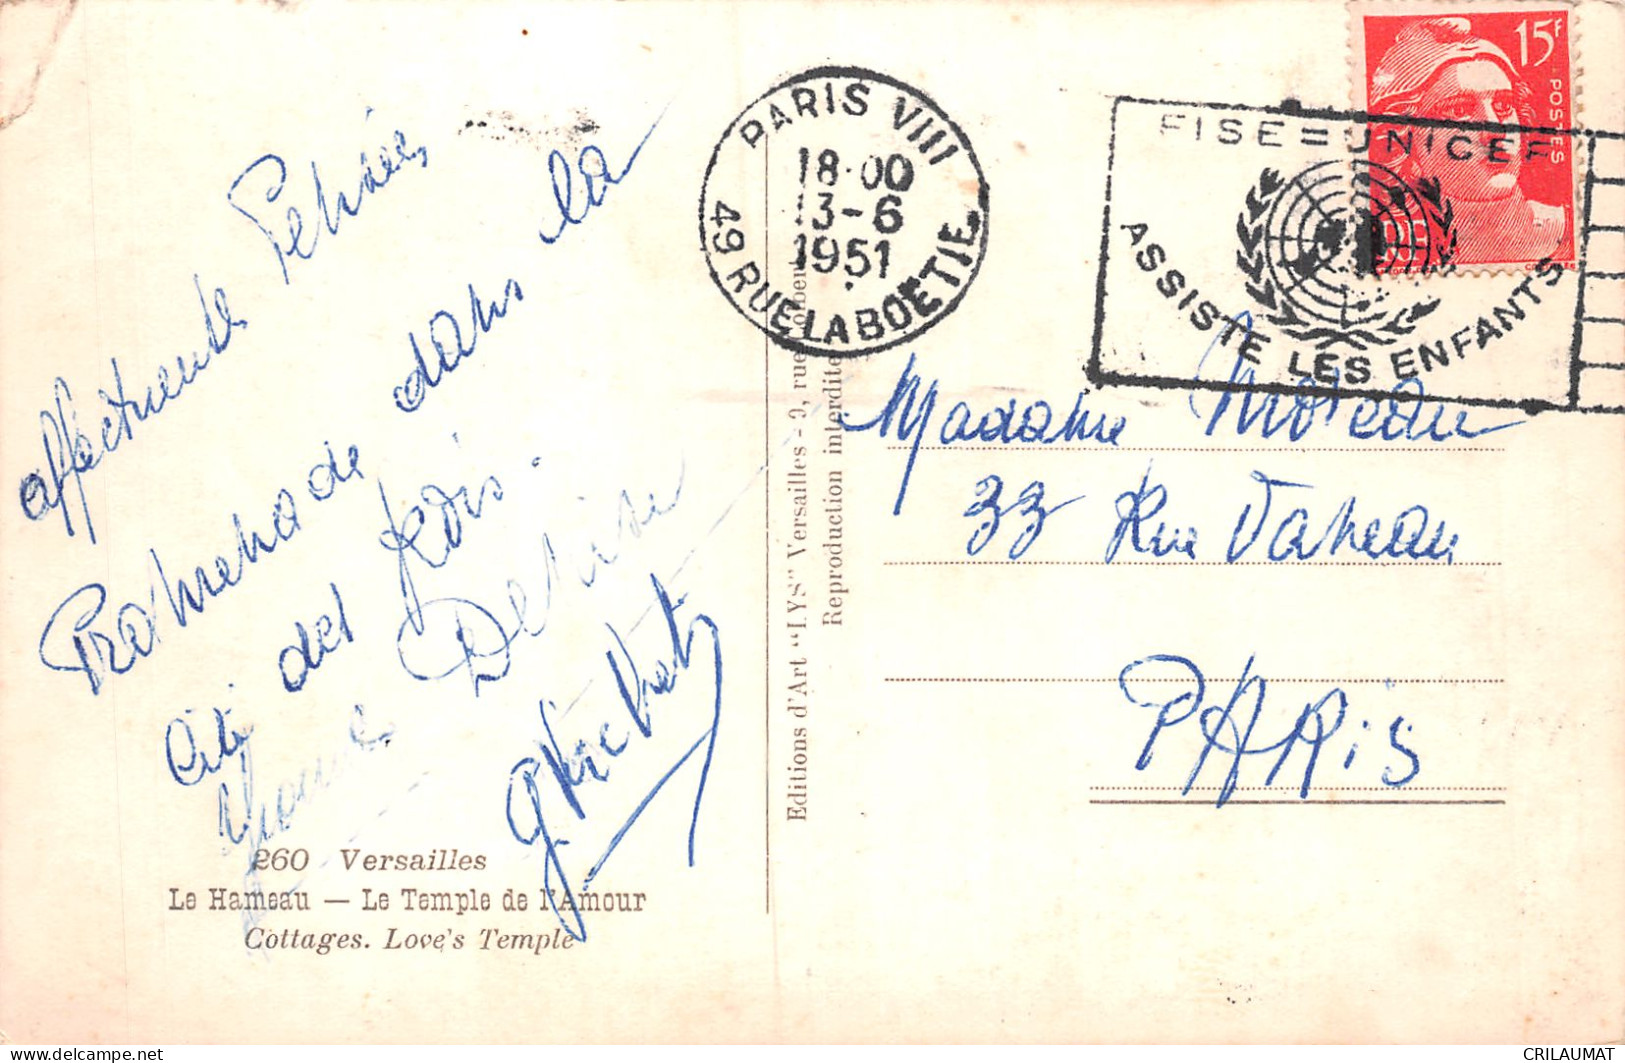 affectueuses Pensées
Promenade dans la
Cité des Rois.
Denise
260 Versailles
Le Hameau — Le Temple de l'Amour
Cottages. Love's Temple
Editions d'Art "LYS" Versailles - 9, rue
Reproduction interdite
PARIS VIII
18·00
13-6
1951
49 RUE LA BOETIE
FISE=UNICEF
ASSISTE LES ENFANTS
15F
POSTES
Madame Moreau
33 Rue Vaneau
PARiS
CRILAUMAT